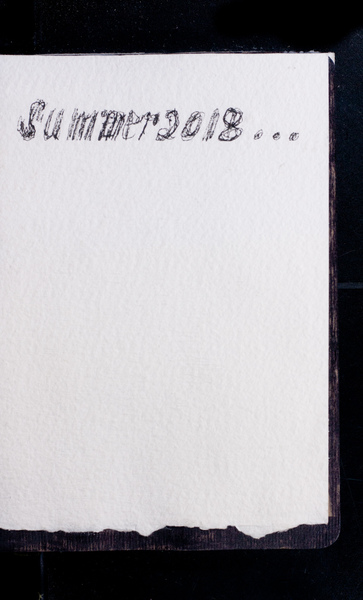 Summer 2018...